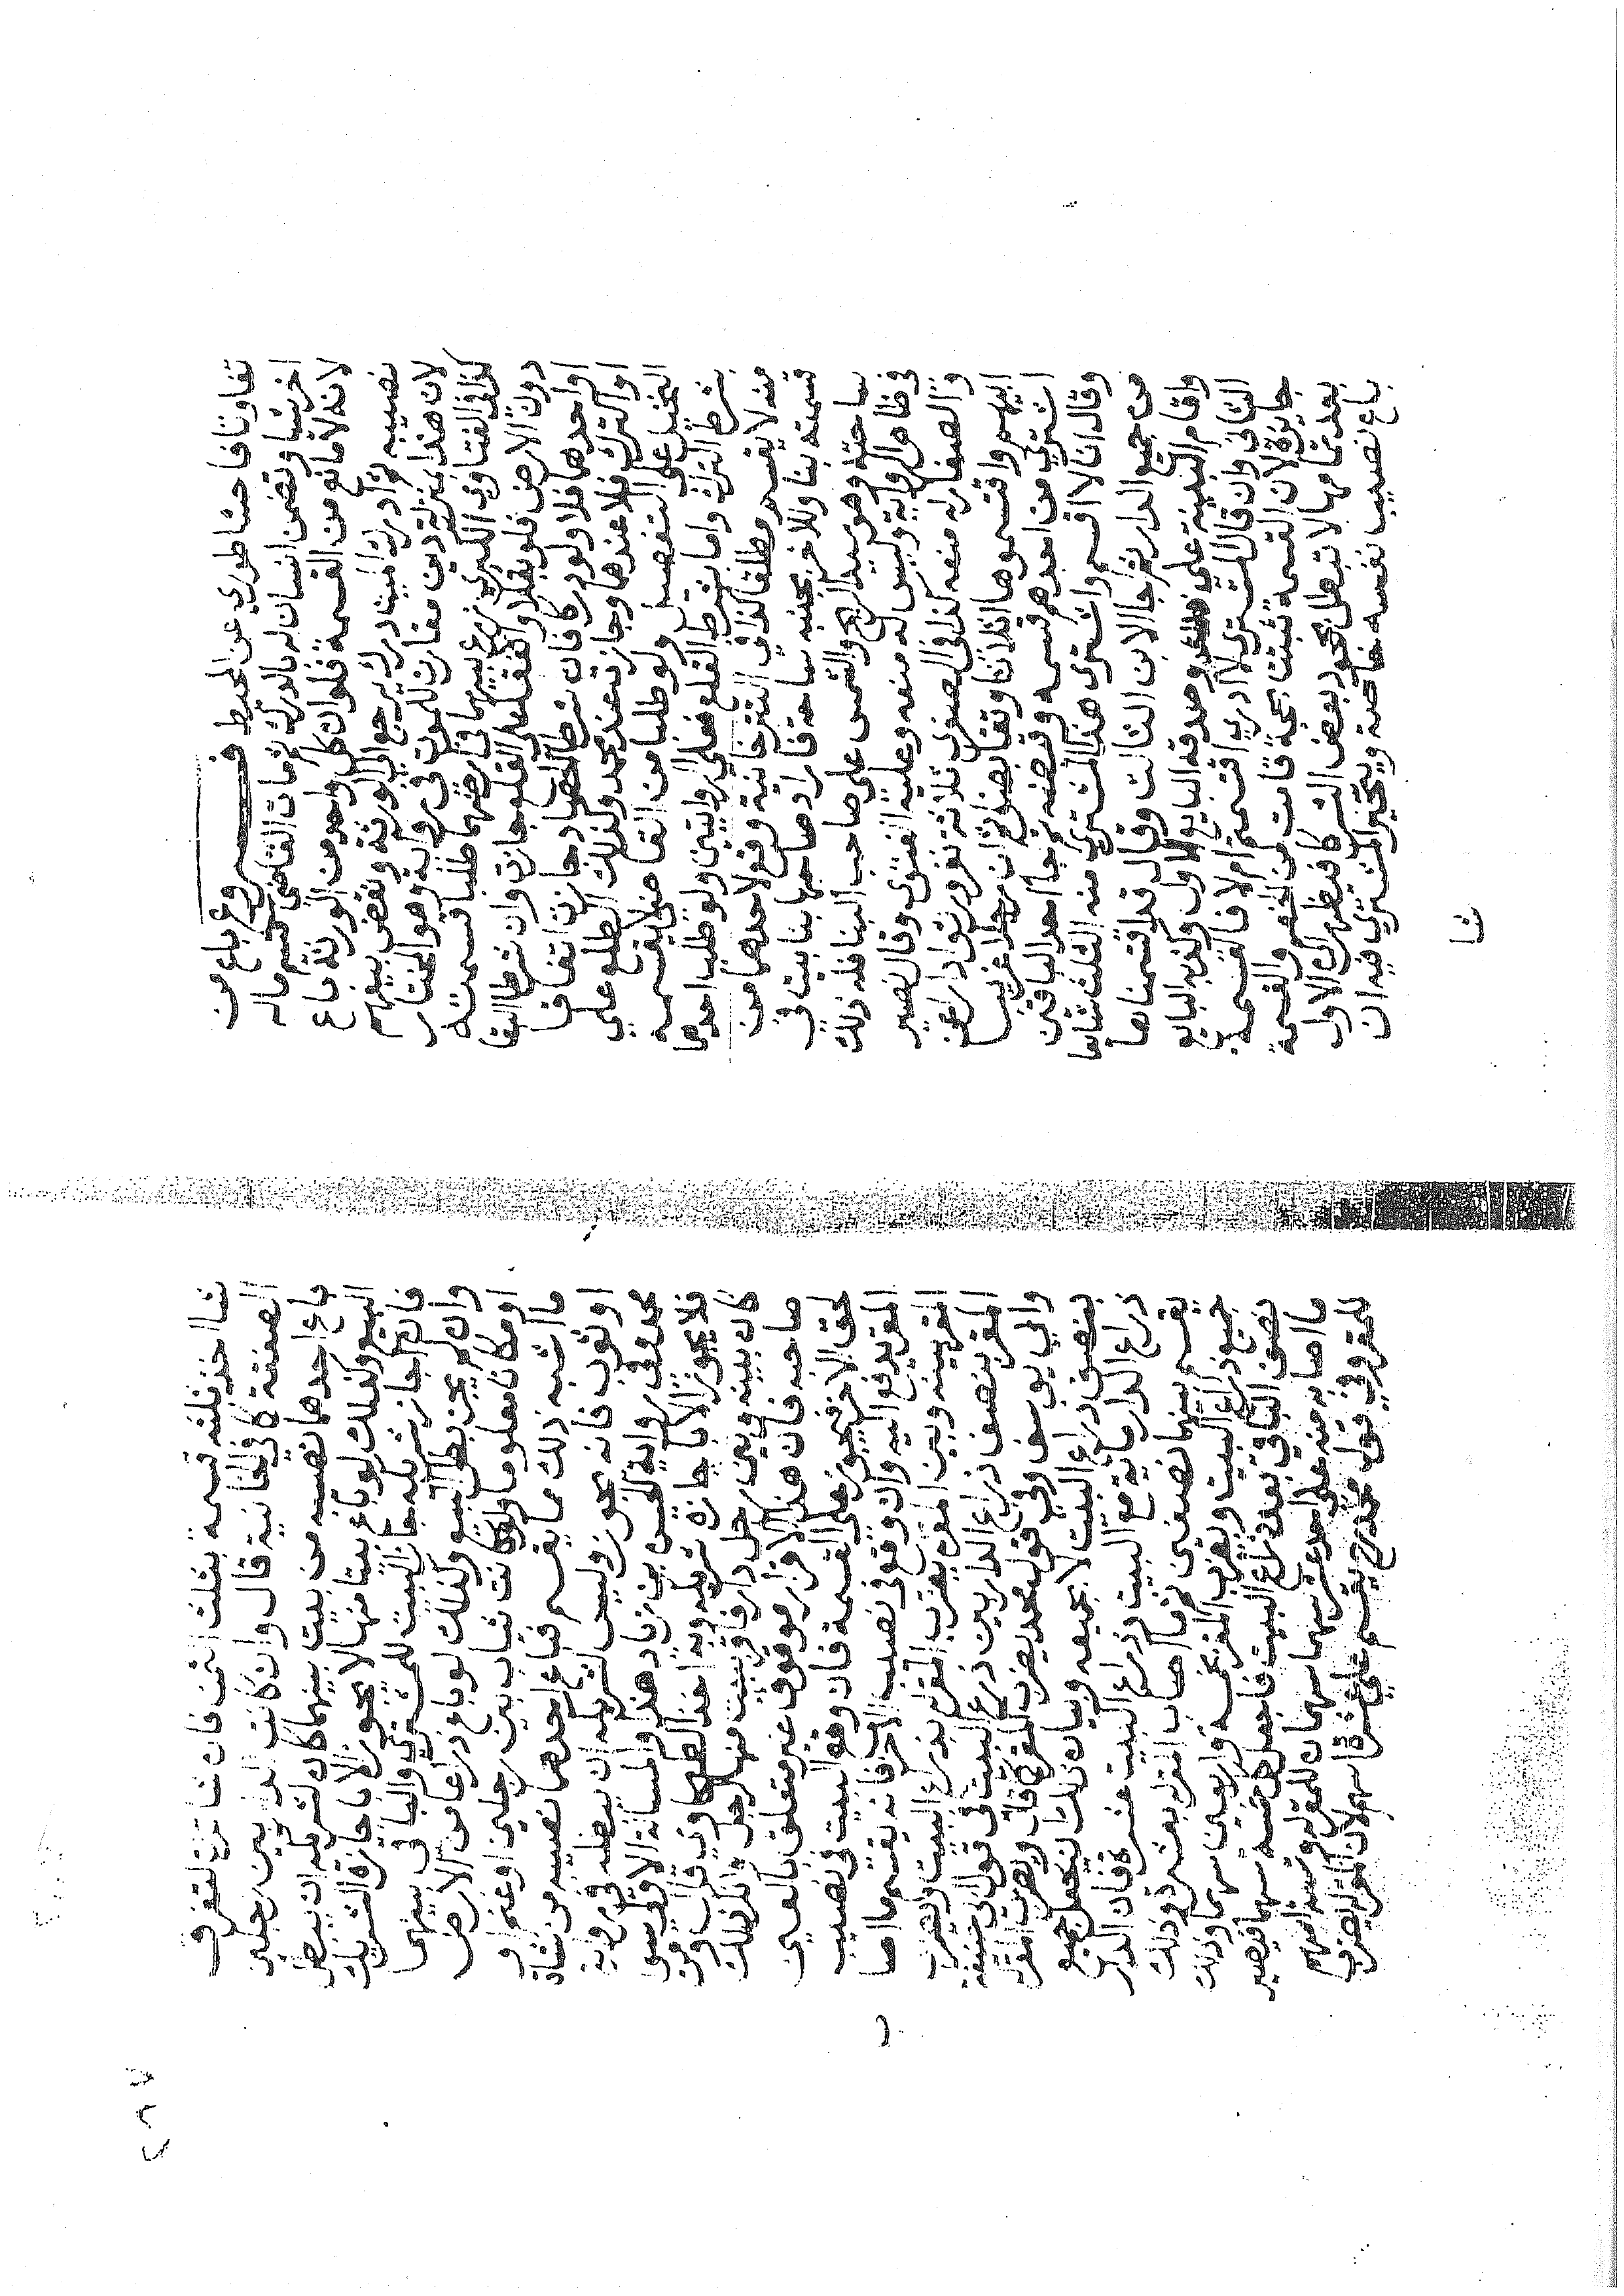 تفاوتا فاحشا طوري عن المحيط فــروع باع من
اخر شيا وتضمن انسان له بالدرك ثم مات القاضي يقسم ماله
لانه لا مانع من القسمة فلو ان كل واحد من الورثة باع
نصيبه ثم ادرك درك يرجع الي الورثة ونقض بيعهم
لان هذا بمنزلة دين مقارن للموت في رواية وهو المختار
كذا في الفتاوي الكبري زرع بينهما في ارضهما طلبا قسمته
دون الارض فلو بقلا واتفقا على القلع جازت وان شرطا البقا
او احدهما فلا ولو مدركا فان شرطا الحصاد جازت اتفاقا
او الترك فلا عندهما وجازت عند محمد وكذلك الطلع علي
النخيل على التفصيل ولو طلبا من القاضي لا يقسمه
بشرط الترك واما بشرط القلع فعلي الروايتين ولو طلب احدهما
منه لا يقسم مطلقا كذا في التترخانية وقع لاحدهما من
قسمته بنا وللاخر بجنبه ساحة فاراد صاحبها بنا بيت في
ساحته وهو يسد الريح والشمس على صاحب البنا فله ذلك
في ظاهر الرواية وليس له منعه وعليه الفتوى وقال نصير
والصفار له منعه كذا في الصغرى ثلاثة نفر ورثوا دارا عن
ابيهم واقتسموها اثلاثا وتقابضوا ثم ان رجلا غريبا
اشتري من احدهم قسمه وقبضه ثم جا احد الباقين
وقال انا لا اقسم واشتري هذا المشتري منه الثلث شايعا
من جميع الدار ثم جا الابن الثالث وقال قد اقتسمناها
واقام البينة علي وصدقه البايع الاول وكذبه البايع
الثاني وان قال المشتري لا ادري اقتسمتم ام لا فالقسمة
جايزة لان القسمة تثبت بحجة قامت من الخصم والقسمة
بعد تمامها لا تبطل بجحود بعض الشركا فيظهر ان الاول
باع نصيب نفسه خاصة ويتخير المشتري فيه ان
شا
شا اخذ بثلثه قسمة بثلث الثمن فان شا ترك لتفرق
الصفقة كما في الخانية قال وان كانت الدار بين رجلين
باع احدهما نصيبه من بيت بينهما كان لشريكه ان يبطل
البيع وكذلك لو باع بيتا منها لا يجوز الا باجازة الشريك
فان اجاز شريكه جاز البيت للمشتري والباقي بينهما
وان لم يجز بطل البيع وكذلك لو باع ذراعا من الارض
او مكانا معلوما ولو كانت ثياب بين رجلين او غنم او
ما اشبه ذلك مما يقسم فباع احدهما نصيبه من شاة
او ثوب فانه يجوز وليس لشريكه ان يبطله في رواية
محمد وفي رواية الحسن بن زياد هذا والمسالة الاولى سوا
فلا يجوز الا باجازة شريكه وبه اخذ الطحاوي قلت ومن
كان بينه وبين رجل دار فاقر ببيت منها لرجل وانكر ذلك
صاحبه فان هذا الاقرار موقوف غير متعلق بالعين
لحق الاخر فيجبر على القسمة فان وقع البيت في نصيب
المقر يدفع اليه وان وقع في نصيب الاخر فانه يقسم ما اصا
المقر بينه وبين المقر له يضرب المقر له بذراع البيت ويضرب
المقر بنصف ذراع الدار بين ذرع البيت في قول ابي حنيفة
وابي يوسف وفي قول محمد يضرب المقر كما قلت ويضرب المقر له
بنصف ذراع البيت لا بجميعه وبيان ذلك ان يجعل جميع
ذراع الدار ماية مع البيت وذراع البيت عشرة فان الدار
يقسم بينهما نصفين ثم ما اصاب المقر له بعشرة وذلك
جميع ذراع البيت ويضرب المقر بخمسة واربعين سهما وذلك
نصف الباقي بعد ذراع البيت فاجعل كل خمسة سهما فيصير
ما اصابه منه على احد عشر سهما سهمان للمقر له وتسعة اسهم
للمقر وفي قول محمد رح يقسم على عشرة اسهم لان المقر له يضرب